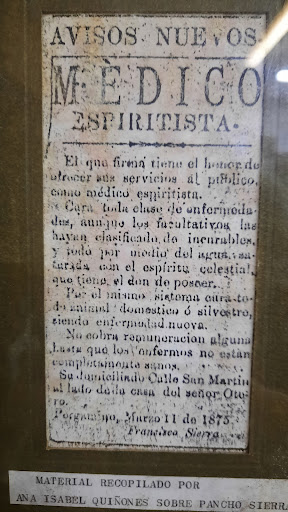 AVISOS NUEVOS.
MÈDICO
ESPIRITISTA.
El que firma tiene el honor de
ofrecer sus servicios al público,
como médico espiritista.
Cura toda clase de enfermeda-
des, aunque los facultativos las
hayan clasificado de incurables,
y todo por medio del agua, sa-
turada con el espíritu celestial,
que tiene el don de poseer.
Por el mismo sistema cura to-
do animal domestico ó silvestre,
siendo enfermedad nueva.
No cobra remuneracion alguna
hasta que los enfermos no estén
completamente sanos.
Su domicilio Calle San Martin
al lado de la casa del señor Ote-
ro.
Pergamino, Marzo 11 de 1875
Francisco Sierra
MATERIAL RECOPILADO POR
ANA ISABEL QUIÑONES SOBRE PANCHO SIERRA